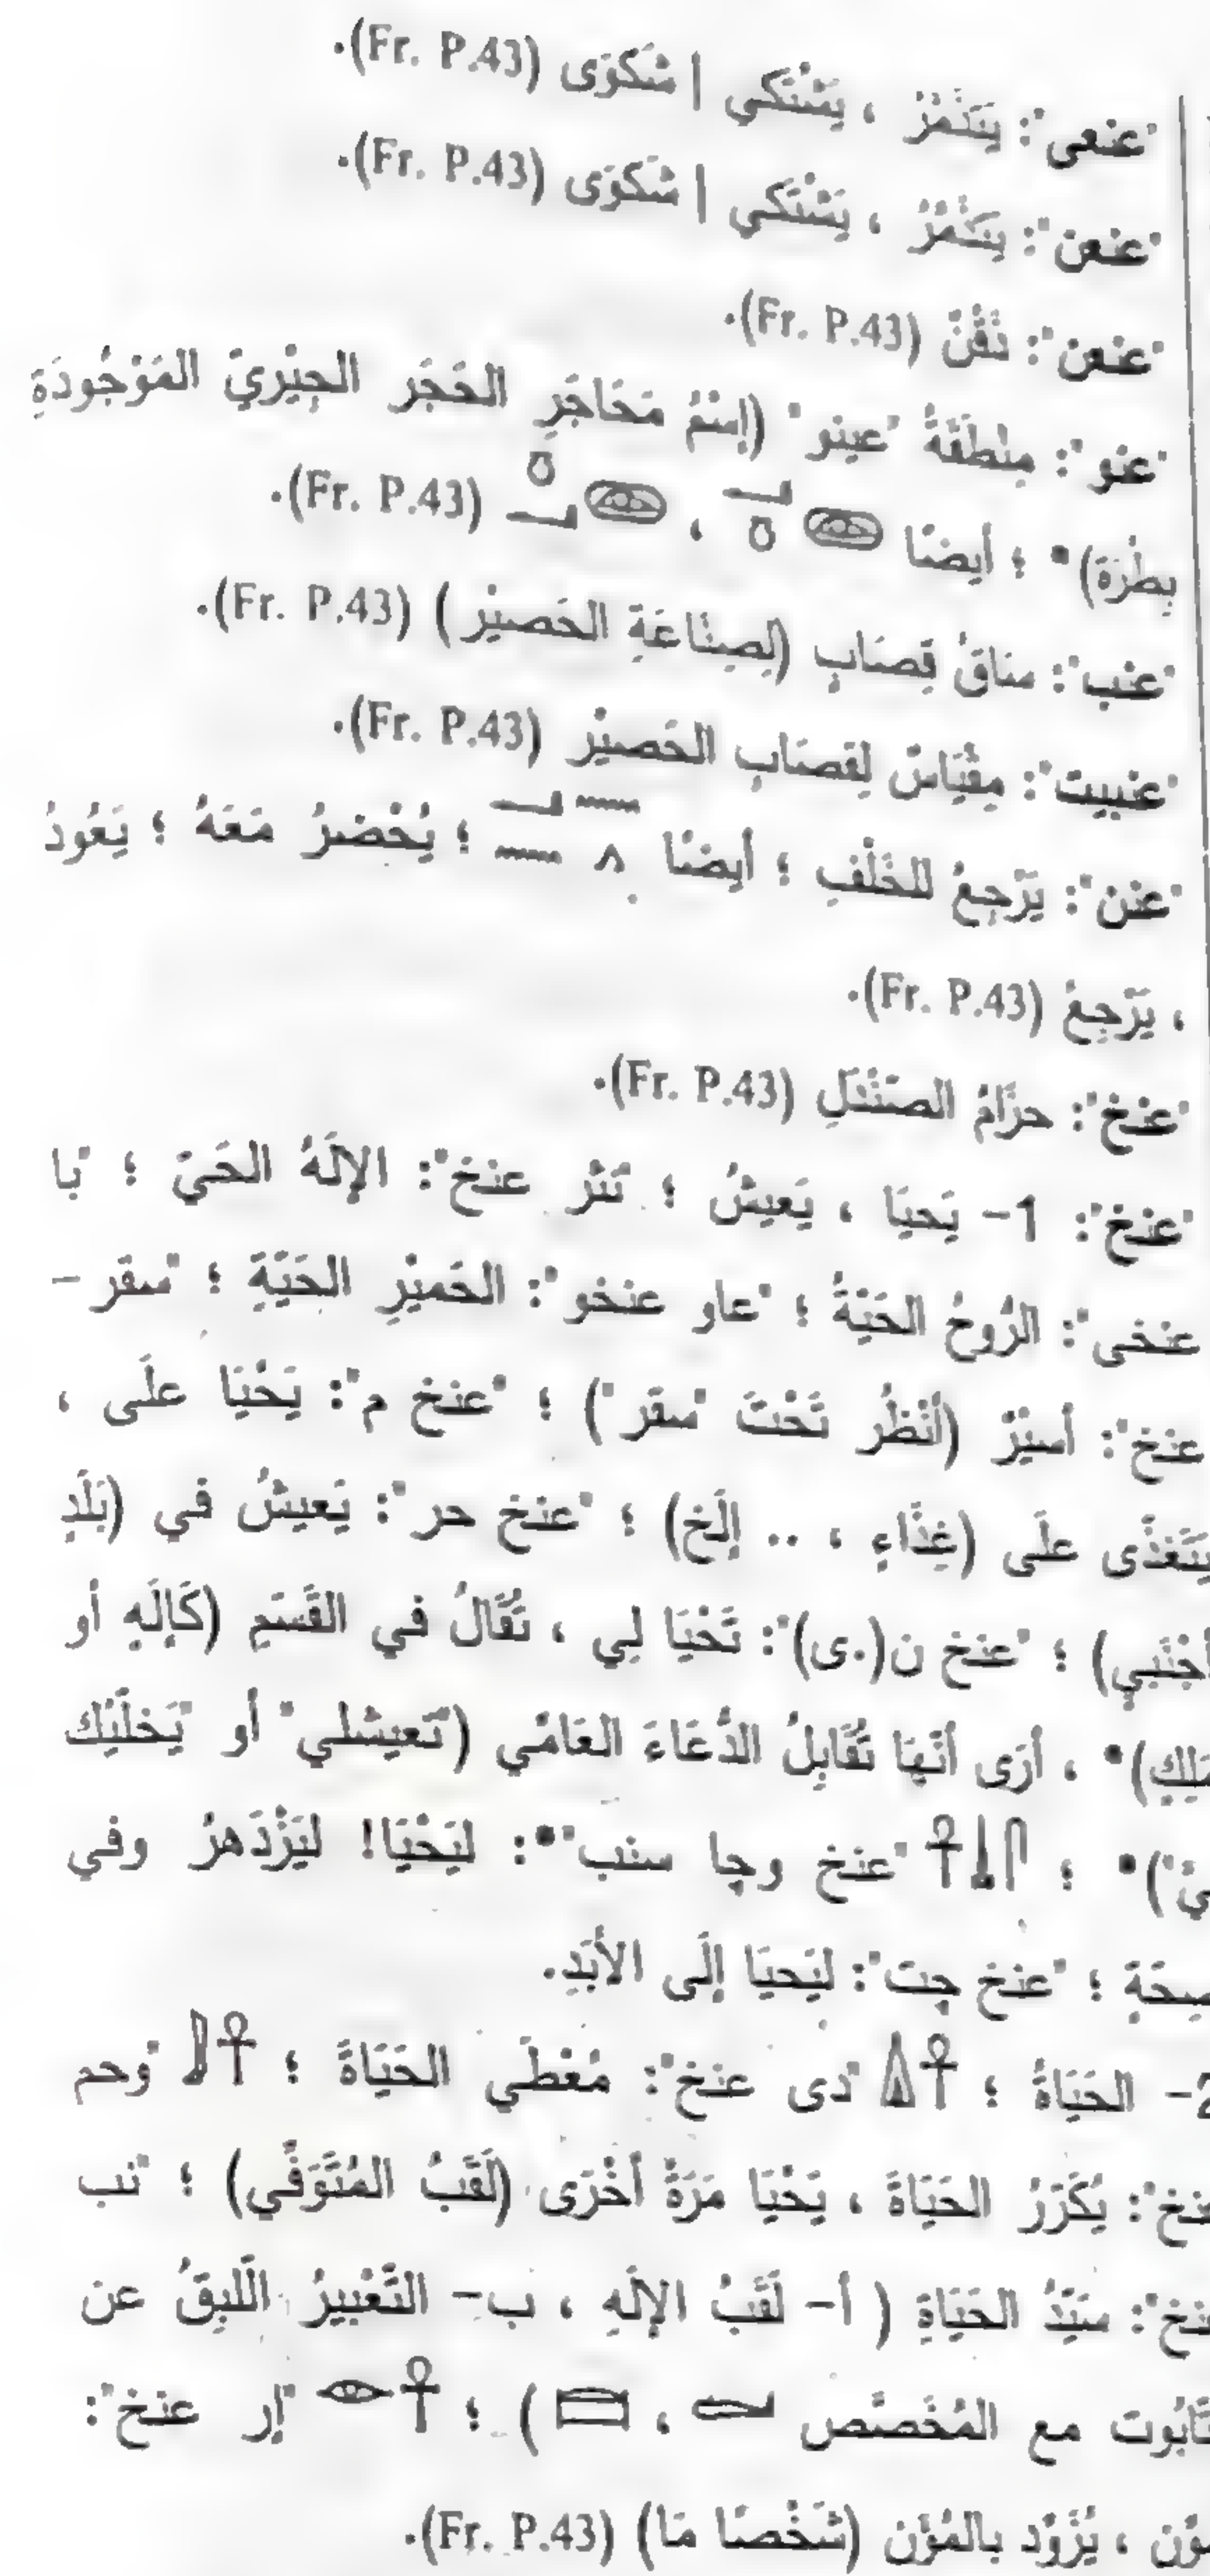 "عنعى": يَتَذَمَّرُ ، يَشْتَكي | شَكوَى (Fr. P.43).
"عنعن": يَتَذَمَّرُ ، يَشْتَكي | شَكوَى (Fr. P.43).
"عنعن": ذَقْنٌ (Fr. P.43).
"عنو": مِنْطَقَةُ "عينو" (إسْمُ مَحَاجَرِ الحَجَر الجِيْريّ المَوْجُودَةِ
بِطُرَةَ)* ؛ أيضًا ، (Fr. P.43).
"عنب": سَاقُ قِصَابٍ (لِصِنَاعَةِ الحَصيْر) (Fr. P.43).
"عنبيت": مِقْيَاسٌ لِقصَابِ الحَصيْر (Fr. P.43).
"عنن": يَرْجِعُ للخَلْفِ ؛ أيضًا ؛ يُحْضرُ مَعَهُ ؛ يَعُودُ
، يَرْجِعُ (Fr. P.43).
"عنخ": حزَامُ الصَنْدَلِ (Fr. P.43).
"عنخ": 1- يَحيَا ، يَعيشُ ؛ "نثر عنخ": الإلَهُ الحَيّ ؛ "با
عنخى": الرُوحُ الحَيّةُ ؛ "عاو عنخو": الحَميْرِ الحَيّةِ ؛ "سقر-
عنخ": أسيْرٌ (أنْظُر تَحْتَ "سقر") ؛ "عنخ م": يَحْيَا علَى ،
يَتَغذَّى علَى (غِذَاءٍ ، .. إلَخ) ؛ "عنخ حر": يَعيشُ في (بَلَدٍ
أجْنَبيٍ) ؛ "عنخ ن(.ى)": تَحْيَا لِي ، تُقَالُ في القَسَمِ (كَإلَهٍ أو
مَلِكٍ)* ، أرَى أنّهَا تُقَابِلُ الدُعَاءَ العَامّي ("تعيشلي" أو "يَخلّيْك
ليّ")* ؛ "عنخ وچا سنب"*: ليَحْيَا! ليَزْدَهرُ وفي
صِحَةٍ ؛ "عنخ چت": ليَحيَا إلَى الأبَدِ.
2- الحَيَاةُ ؛ "دى عنخ": مُعْطَي الحَيَاةَ ؛ "وحم
عنخ": يُكَرَرُ الحَيَاةَ ، يَحْيَا مَرَةً أخْرَى (لَقَبُ المُتَوَفّي) ؛ "نب
عنخ": سَيّدُ الحَيَاةِ ( أ- لَقَبُ الإلَهِ ، ب- التّعْبيرُ اللّبِقُ عن
تَابُوت مع المُخَصّص ، ) ؛ "إر عنخ":
مؤن ، يُزَوّد بالمُؤَن (شَخْصًا مَا) (Fr. P.43).